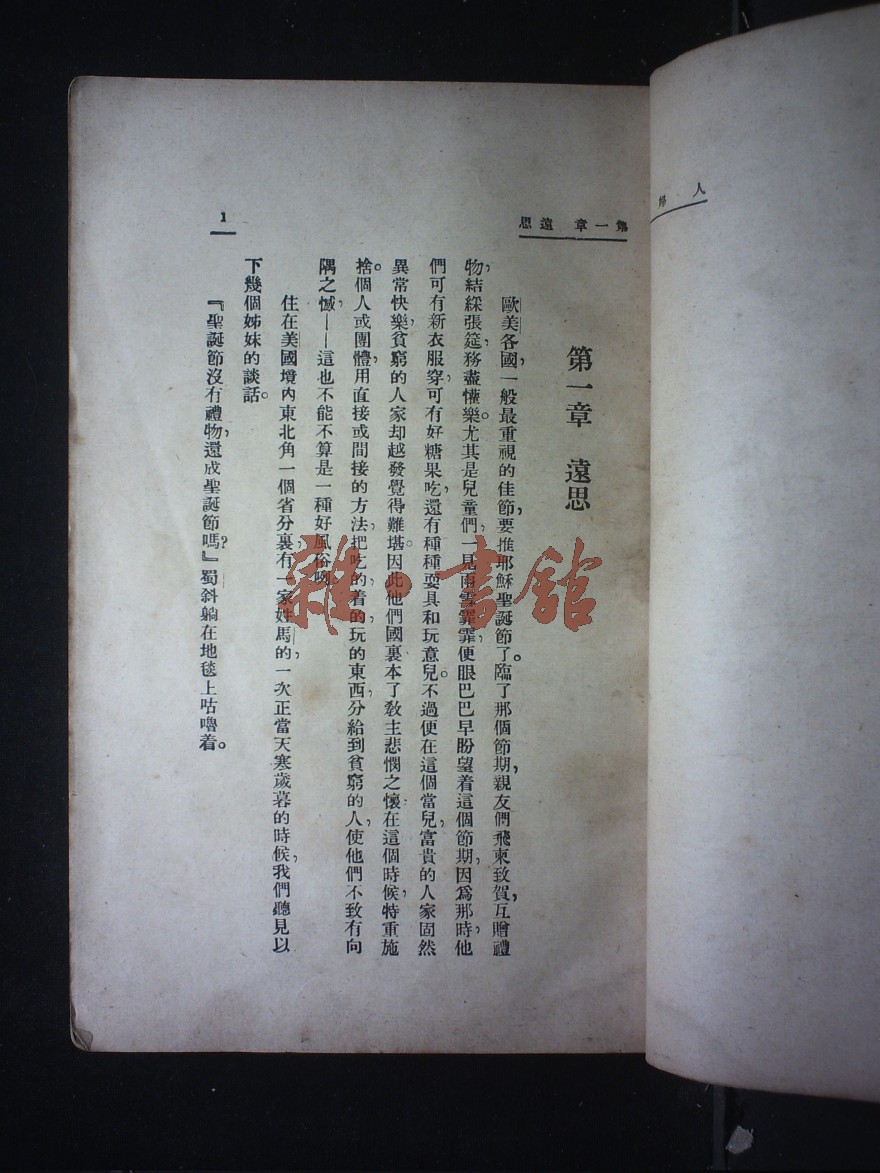 人 婦
第一章 遠思
1
第一章 遠思
歐美各國，一般最重視的佳節，要推耶穌聖誕節了。臨了那個節期，親友們飛柬致賀，互贈禮
物，結綵張筵，務盡懽樂。尤其是兒童們，一見雨霖霏霏，便眼巴巴早盼望着這個節期，因爲那時，他
們可有新衣服穿，可有好糖果吃，還有種種耍具和玩意兒。不過便在這個當兒，富貴的人家固然
異常快樂，貧窮的人家却越發覺得難堪。因此他們國裏本了敎主悲憫之懷，在這個時候，特重施
捨。個人或團體，用直接或間接的方法，把吃的，着的，玩的東西，分給到貧窮的人，使他們不致有向
隅之憾——這也不能不算是一種好風俗
住在美國境內東北角一個省分裏，有一家姓馬的，一次正當天寒歲暮的時候，我們聽見以
下幾個姊妹的談話。
『聖誕節沒有禮物，還成聖誕節嗎？』蜀斜躺在地毯上咕嚕着。
雜·書館